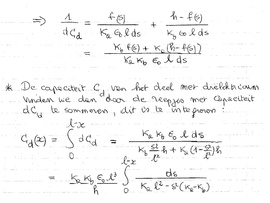 ⇒ 1/dC_d = f(s)/(K_a ε_0 l ds) + (h - f(s))/(K_b ε_0 l ds)
= (K_b f(s) + K_a (h - f(s)))/(K_a K_b ε_0 l ds)
* De capaciteit C_d van het deel met diëlektricum
vinden we dan door de reepjes met capaciteit
dC_d te sommeren, dit is te integreren:
C_d(x) = ∫_0^{l-x} dC_d = ∫ K_a K_b ε_0 l ds / (K_b s²/l² h + K_a (1 - s²/l²) h)
= K_a K_b ε_0 l³/h ∫_0^{l-x} ds/(K_a l² - s² (K_a - K_b))